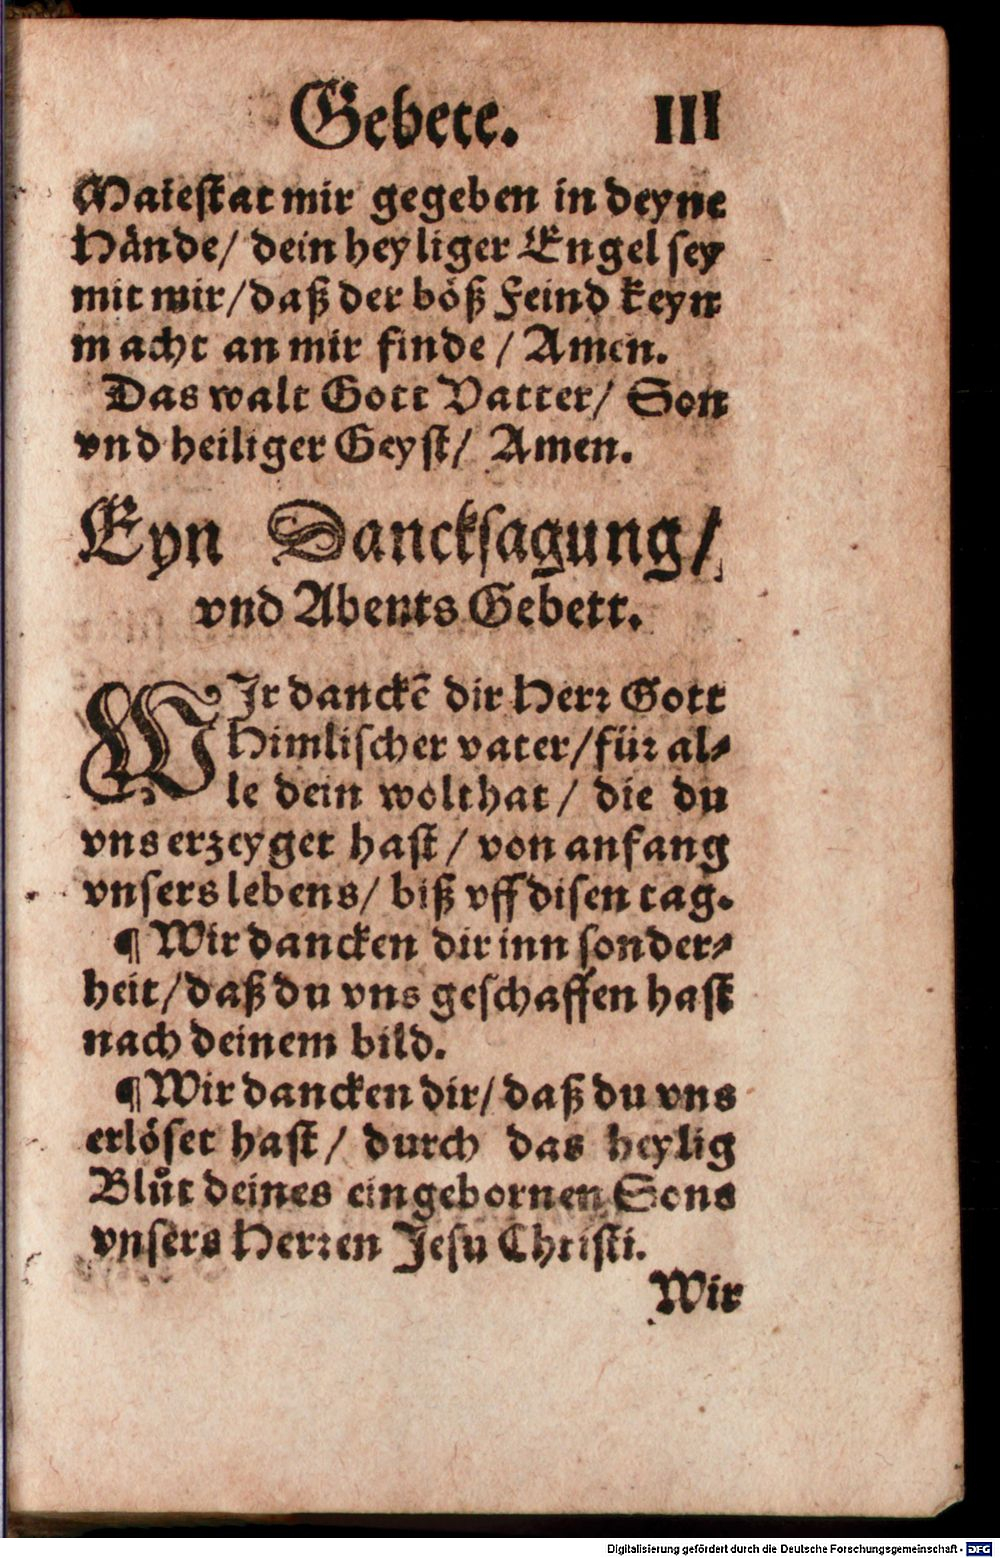 Gebete. III
Maiestat mir gegeben in deyne
Hände/ dein heyliger Engel sey
mit mir/ daß der böß Feind keyn
macht an mir finde / Amen.
Das walt Gott Vatter/ Son
vnd heiliger Geyst/ Amen.
Eyn Dancksagung/
vnd Abents Gebett.
WIr danckē dir Herr Gott
Himlischer vater/ für al-
le dein wolthat / die du
vns erzeyget hast / von anfang
vnsers lebens/ biß vff disen tag.
¶ Wir dancken dir inn sonder-
heit/ daß du vns geschaffen hast
nach deinem bild.
¶ Wir dancken dir/ daß du vns
erlöset hast / durch das heylig
Blůt deines eingebornen Sons
vnsers Herren Jesu Christi.
Wir
Digitalisierung gefördert durch die Deutsche Forschungsgemeinschaft - DFG